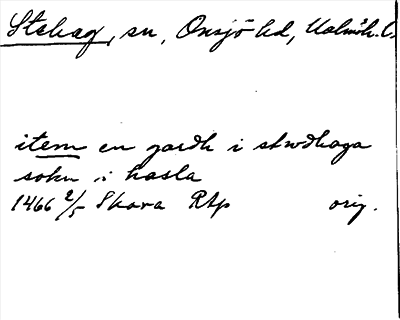 Stehag, sn, Onsjö hd, Malmöh. l.
item en gardh i stwdhaga
sokn i hasla
1466 2/5 Skara RAp orig.